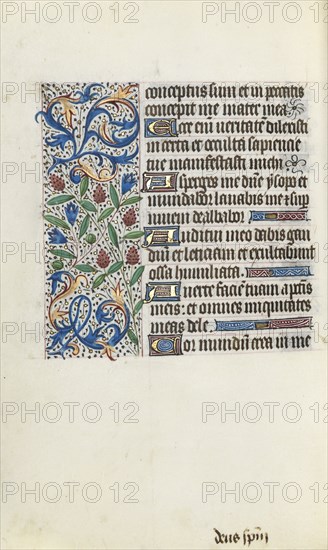 conceptus sum et in peccatis
concepit me mater mea
Ecce eni veritatē dilexisti
incerta et occulta sapiencie
tue manifestasti michi
Asperges me dnē ysopo et
mundabor lavabis me et sup
nivem dealbabor
Auditui meo dabis gau
diū et leticiam et exultabunt
ossa humiliata
Averte faciē tuam a pctīs
meis et omnes iniquitates
meas dele
Cor mundū crea in me
deus spūs
PHOTO 12
PHOTO 12
PHOTO 12
PHOTO 12
PHOTO 12
PHOTO 12
PHOTO 12
PHOTO 12
PHOTO 12
PHOTO 12
PHOTO 12
PHOTO 12